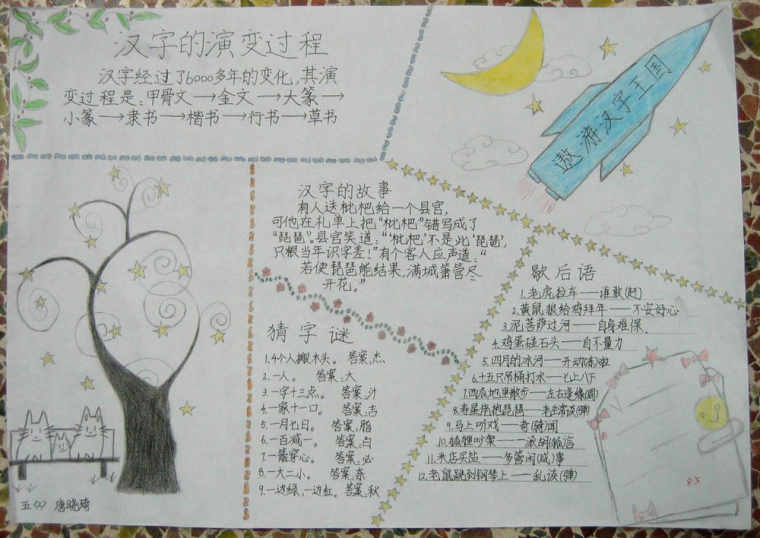 汉字的演变过程
汉字经过了6000多年的变化,其演
变过程是:甲骨文→金文→大篆→
小篆→隶书→楷书→行书→草书
遨游汉字王国
汉字的故事
有人送枇杷给一个县官,
可他在礼单上把“枇杷”错写成了
“琵琶”。县官笑道:“‘枇杷’不是此‘琵琶’,
只恨当年识字差!”有个客人应声道:“
若使琵琶能结果,满城箫管尽
开花。”
猜字谜
1.4个人搬木头。 答案,杰
2.一人。 答案,大
3.一字十三点。 答案,汁
4.一家十一口。 答案,吉
5.一月七日。 答案,脂
6.一百减一。 答案,白
7.一箭穿心。 答案,必
8.一大二小。 答案,奈
9.一边绿,一边红。 答案,秋
歇后语
1.老虎拉车——谁敢(赶)
2.黄鼠狼给鸡拜年——不安好心
3.泥菩萨过河——自身难保
4.鸡蛋碰石头——自不量力
5.四月的冰河——开动
6.十五只吊桶打水——七上八下
7.西瓜地里散步——左右逢
8.寿星弹琵琶——老生常谈(弹)
9.马上听戏——奇闻
10.狐狸吵架——
11.米店买盐——多管闲(咸)事
12.老鼠跳到钢琴上——乱谈(弹)
五(4) 唐晓琦